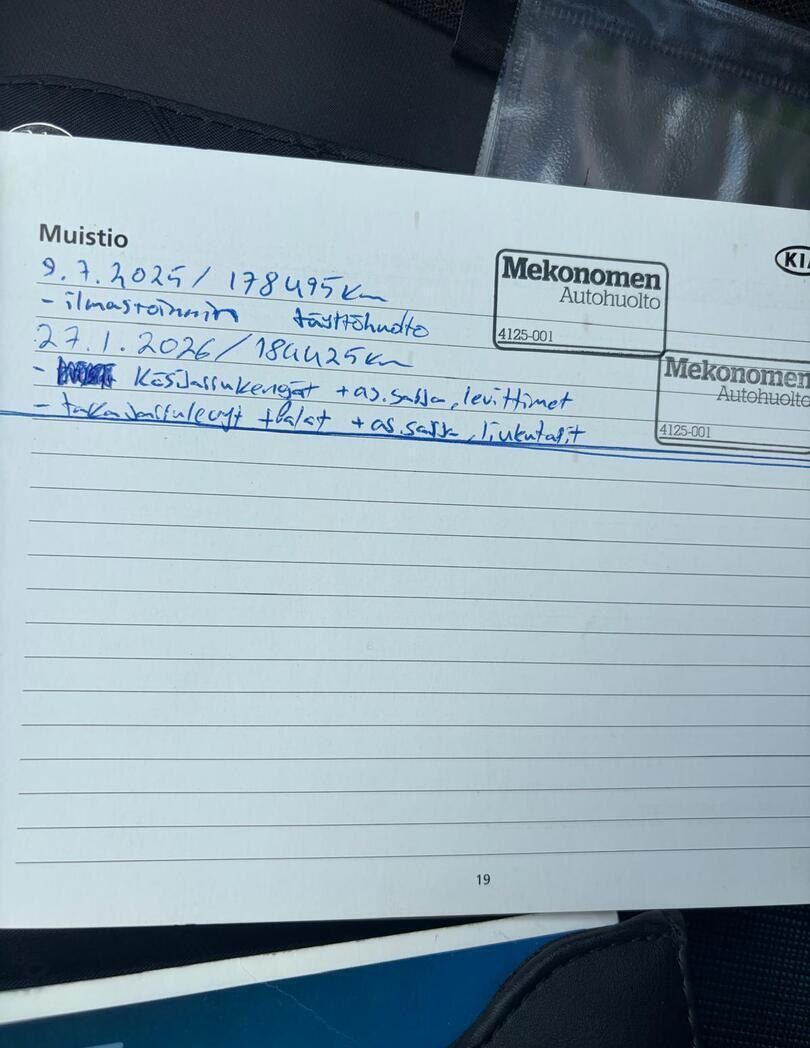 Muistio
KIA
9.7.2025 / 178495km
- ilmastoinnin täyttöhuolto
Mekonomen
Autohuolto
4125-001
27.1.2026 / 184425km
- käsijarrukengät + as.sarja, levittimet
- takajarrulevyt + palat + as.sarja, liukutapit
Mekonomen
Autohuolto
4125-001
19